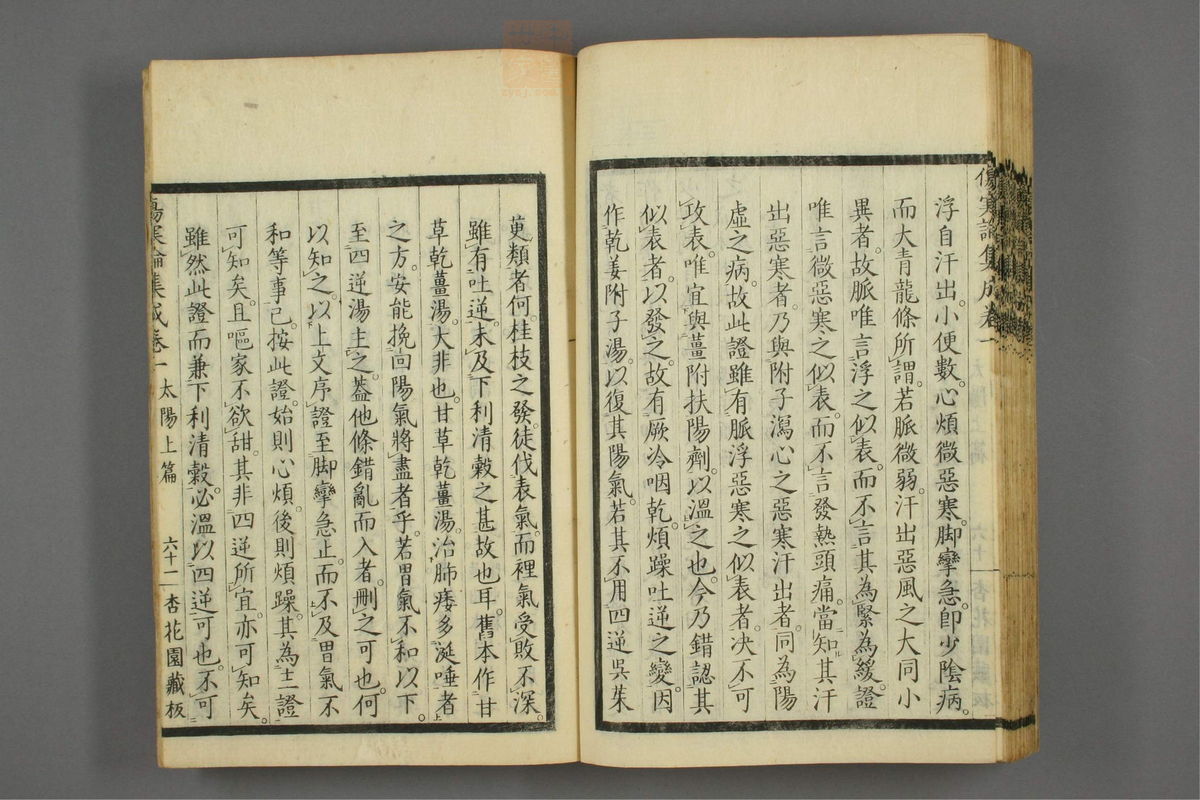 傷寒論集成卷一
浮自汗出。小便數。心煩微惡寒。脚攣急。卽少陰病。
而大青龍條所謂。若脈微弱。汗出惡風之大同小
異者。故脈唯言浮之似表。而不言其為緊為緩。證
唯言微惡寒之似表。而不言發熱頭痛。當知其汗
出惡寒者。乃與附子瀉心之惡寒汗出者。同為陽
虛之病。故此證雖有脈浮惡寒之似表者。决不可
攻表。唯宜與薑附扶陽劑。以溫之也。今乃錯認其
似表者。以發之。故有厥冷咽乾。煩躁吐逆之變。因
作乾姜附子湯。以復其陽氣。若其不用四逆吳茱
萸類者何。桂枝之發。徒伐表氣。而裡氣受敗不深。
雖有吐逆。未及下利清穀之甚故也耳。舊本作甘
草乾薑湯。大非也。甘草乾薑湯。治肺痿多涎唾者
之方。安能挽回陽氣將盡者乎。若胃氣不和以下。
至四逆湯主之。蓋他條錯亂而入者。刪之可也。何
以知之。以上文序證至脚攣急止。而不及胃氣不
和等事已。按此證。始則心煩。後則煩躁。其為二證
可知矣。且嘔家不欲甜。其非四逆所宜。亦可知矣。
雖然此證而兼下利清穀。必溫以四逆可也。不可
傷寒論集成卷一 太陽上篇 六十一 杏花園藏板